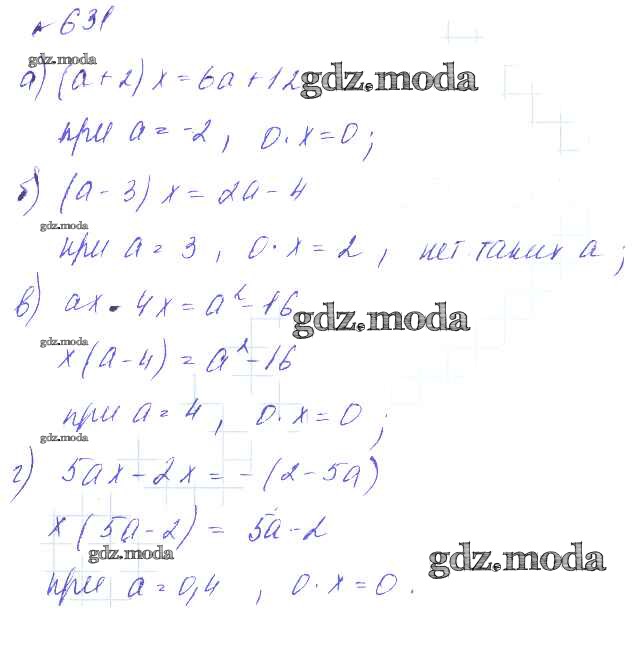 № 631
gdz.moda
а) (a + 2) x = 6a + 12 gdz.moda
при a = -2, 0·x = 0;
б) (a - 3) x = 2a - 4
gdz.moda
при a = 3, 0·x = 2, нет таких a;
в) ax - 4x = a² - 16 gdz.moda
gdz.moda
x(a - 4) = a² - 16
при a = 4, 0·x = 0;
gdz.moda
г) 5ax - 2x = -(2 - 5a)
x(5a - 2) = 5a - 2
gdz.moda gdz.moda
при a = 0,4, 0·x = 0.